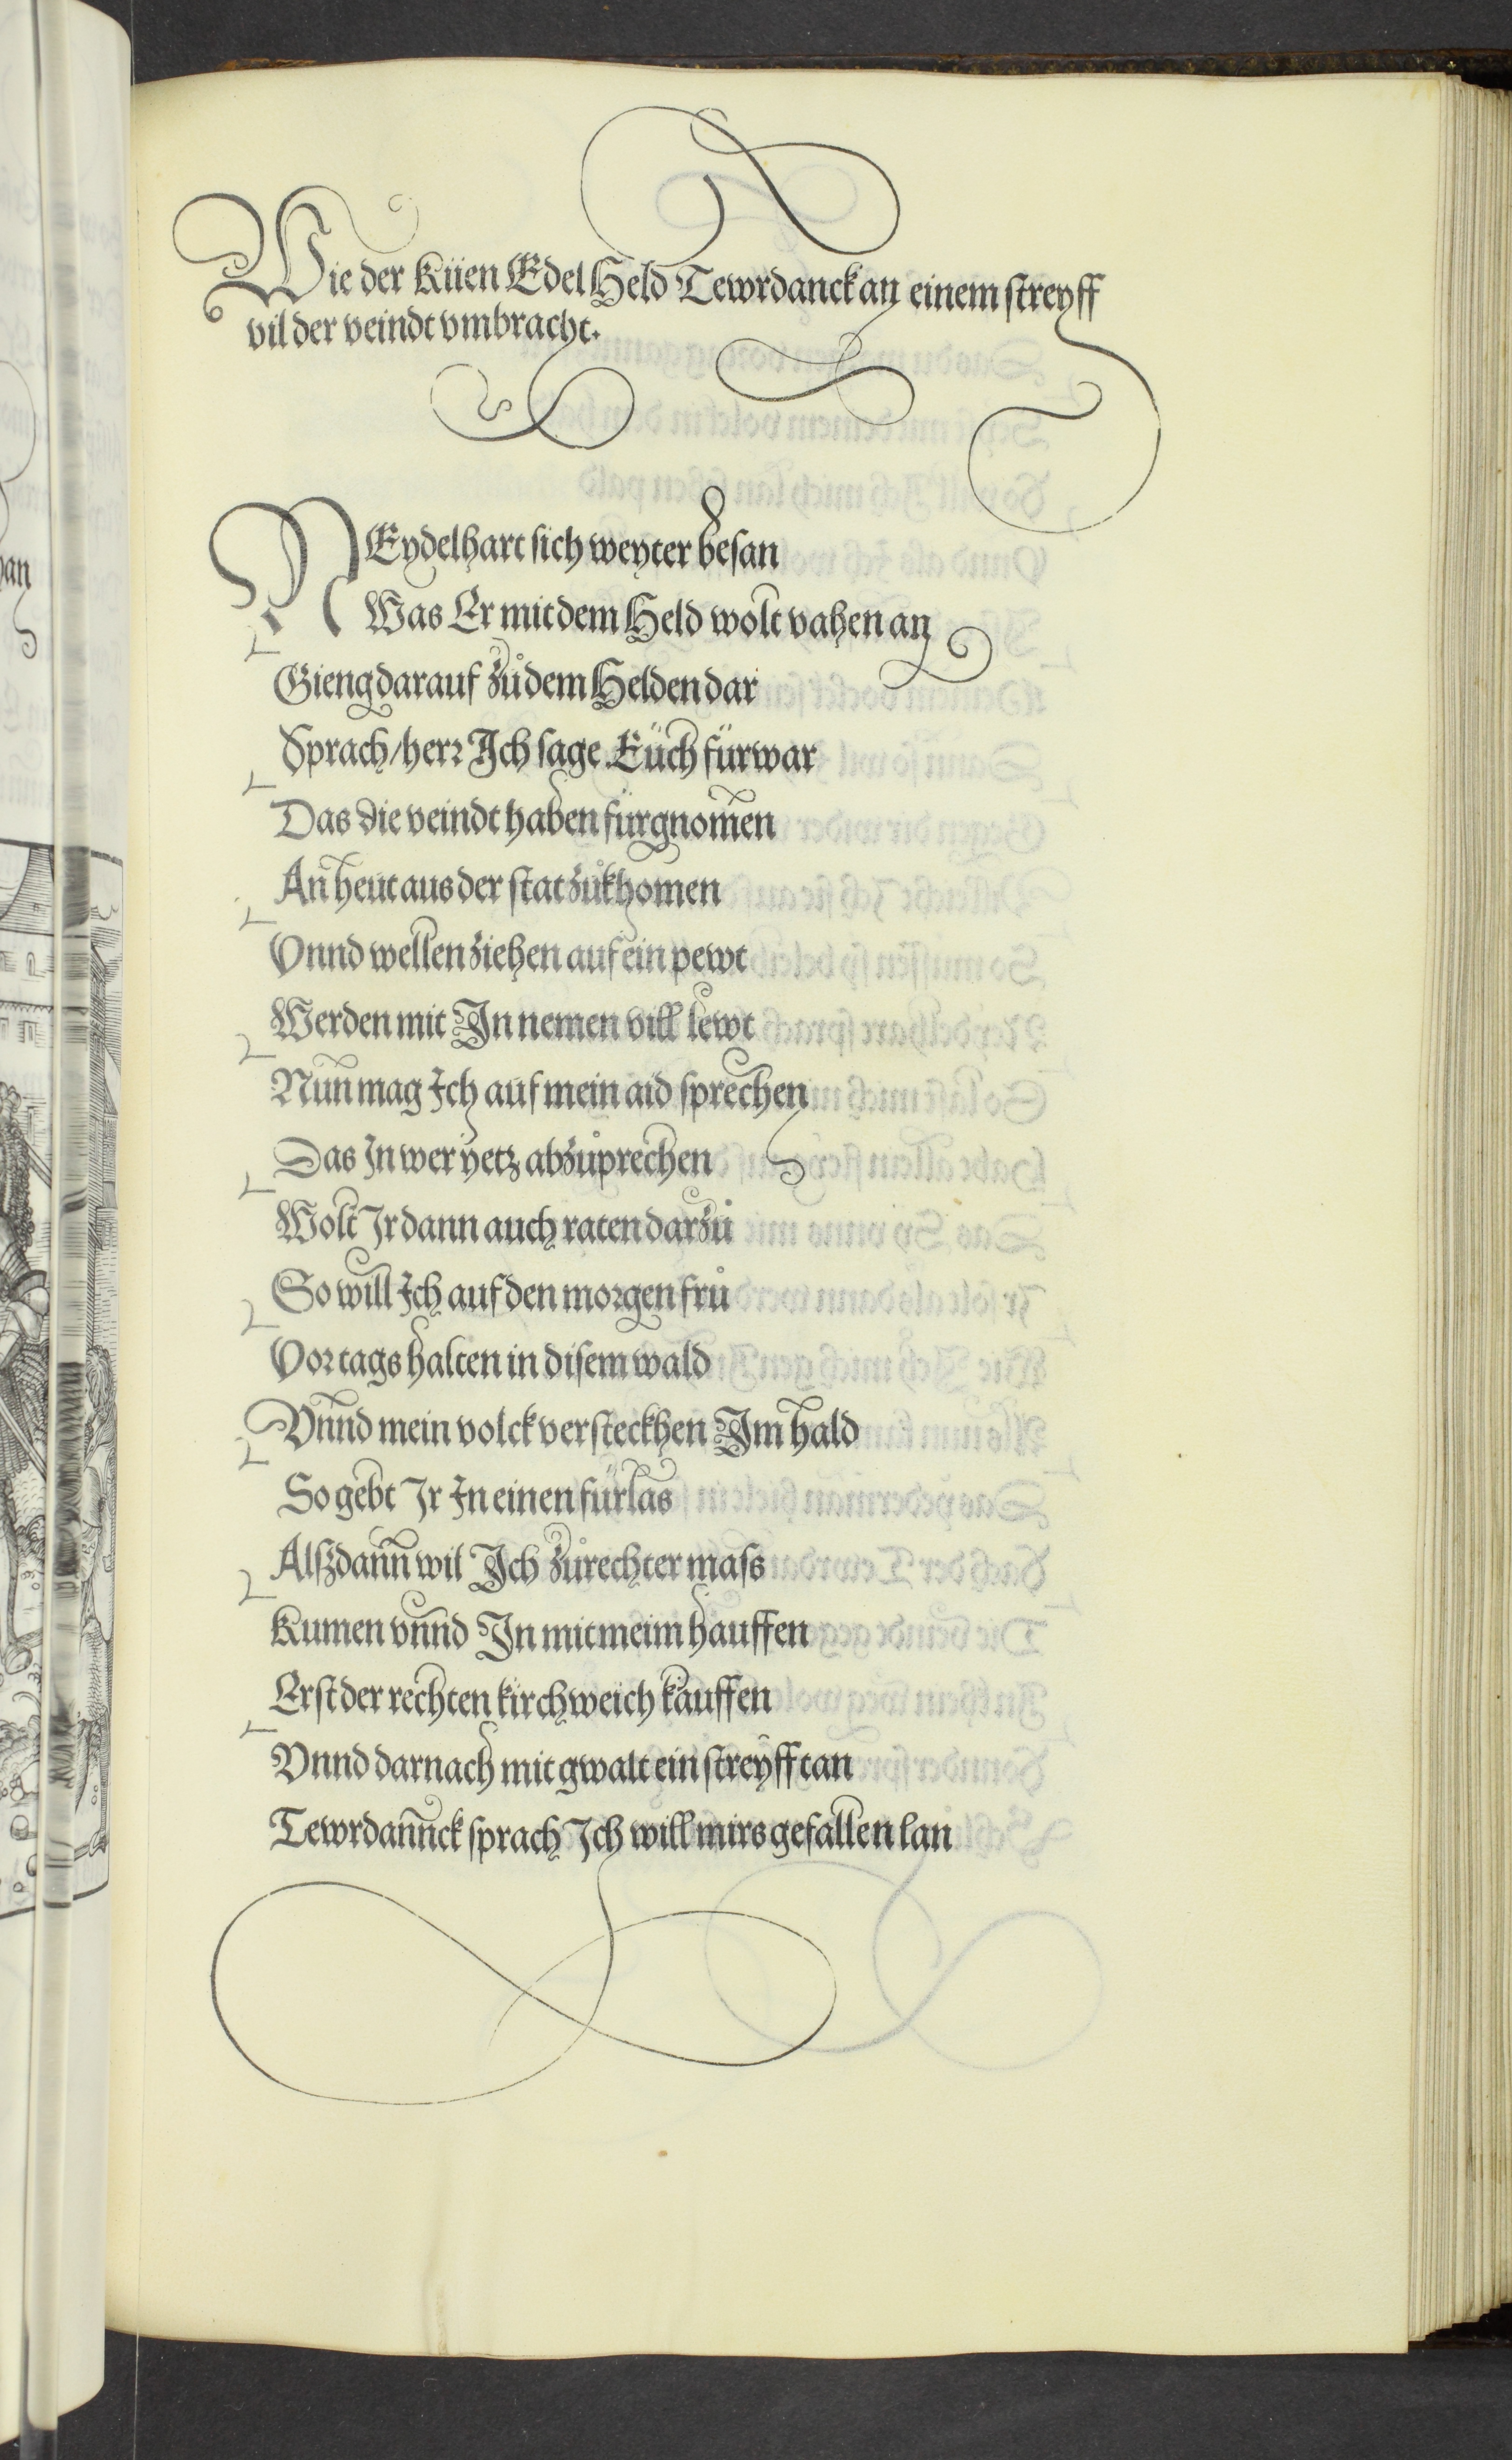 Wie der Küen Edel Held Tewrdanck an einem streyff
vil der veindt vmbracht.
NEydelhart sich weyter besan
Was Er mit dem Held wolt vahen an
Gieng darauf zůdem Helden dar
Sprach/herr Ich sage Eüch fürwar
Das die veindt haben fürgnom̃en
An heut aus der stat zůkhomen
Vnnd wellen ziehen auf ein pewt
Werden mit In nemen vill lewt
Nun mag Ich auf mein aid sprechen
Das In wer yetz abzůprechen
Wolt Ir dann auch raten darzů
So will Ich auf den morgen frů
Vor tags halten in disem wald
Vnnd mein volck versteckhen Im hald
So gebt Ir In einen fürlas
Alßdann wil Ich zů rechter mass
Kumen vnnd In mit meim hauffen
Erst der rechten kirchweich kauffen
Vnnd darnach mit gwalt ein streyff tan
Tewrdannck sprach Ich will mirs gefallen lan